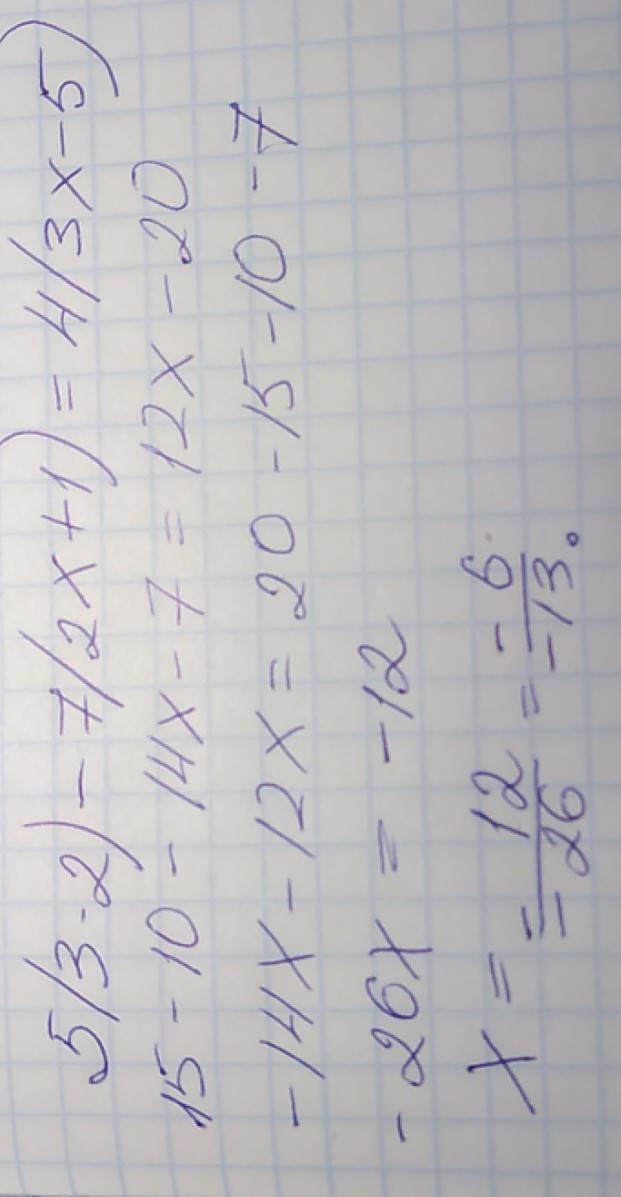 5(3-2) - 7(2x+1) = 4(3x-5)
15 - 10 - 14x - 7 = 12x - 20
-14x - 12x = 20 - 15 - 10 - 7
- 26x = -12
x = -12/-26 = -6/-13.